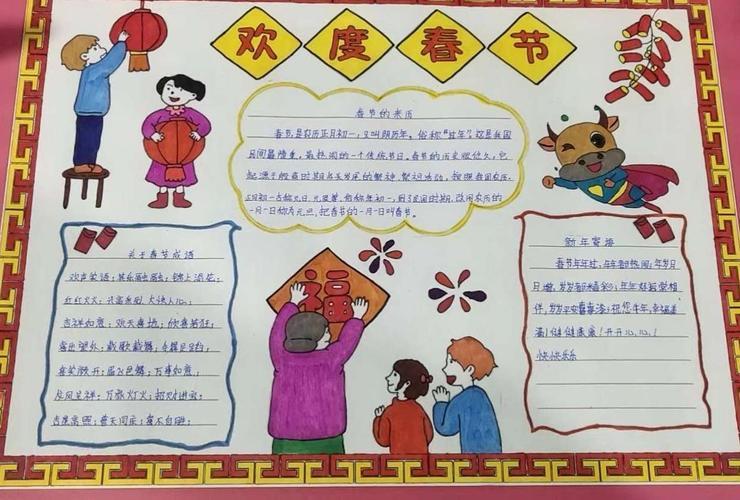 欢度春节
春节的来历
春节是农历正月初一，又叫阴历年。俗称"过年"。这是我国
民间最隆重，最热闹的一个传统节日。春节的历史很悠久，它
起源于殷商时期年头岁尾的祭神，祭祖活动，按照我国农历，
正月初一古称元日、元旦等，俗称年初一，到了民国时期，改用公历的
一月一日称为元旦，把春节的一月一日叫春节。
关于春节成语
欢声笑语；其乐融融；锦上添花；
红红火火；大快人心；
吉祥如意；欢天喜地；欣喜若狂；
喜出望外；载歌载舞；
喜笑颜开；眉飞色舞；万事如意；
万家灯火；招财进宝；
吉星高照；普天同庆；
福
新年寄语
春节年年过；年年都热闹；年岁日
日增，岁岁都
伴，岁岁平安
满！健健康康！开开心心！
快快乐乐